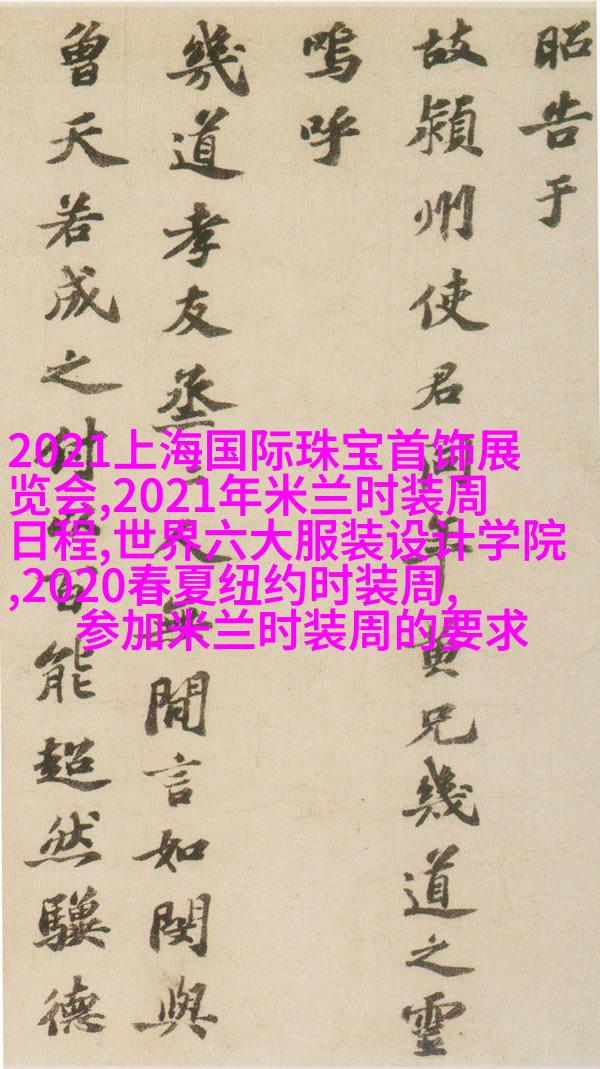 昭告于
故潁州使君同年黃兄幾道之靈
嗚呼
幾道孝友烝〻人無間言如閔與
曾天若成之付以百能超然驥德
2021上海国际珠宝首饰展
览会,2021年米兰时装周
日程,世界六大服装设计学院
,2020春夏纽约时装周,
参加米兰时装周的要求